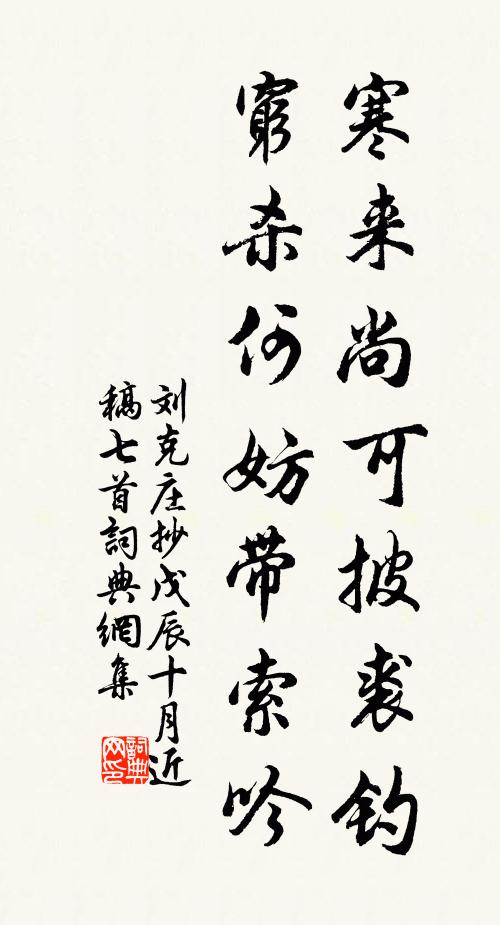 寒来尚可披裘钓
窮杀何妨帶索吟
刘克庄抄戊辰十月近
稿七首詞典網集
詞典网印